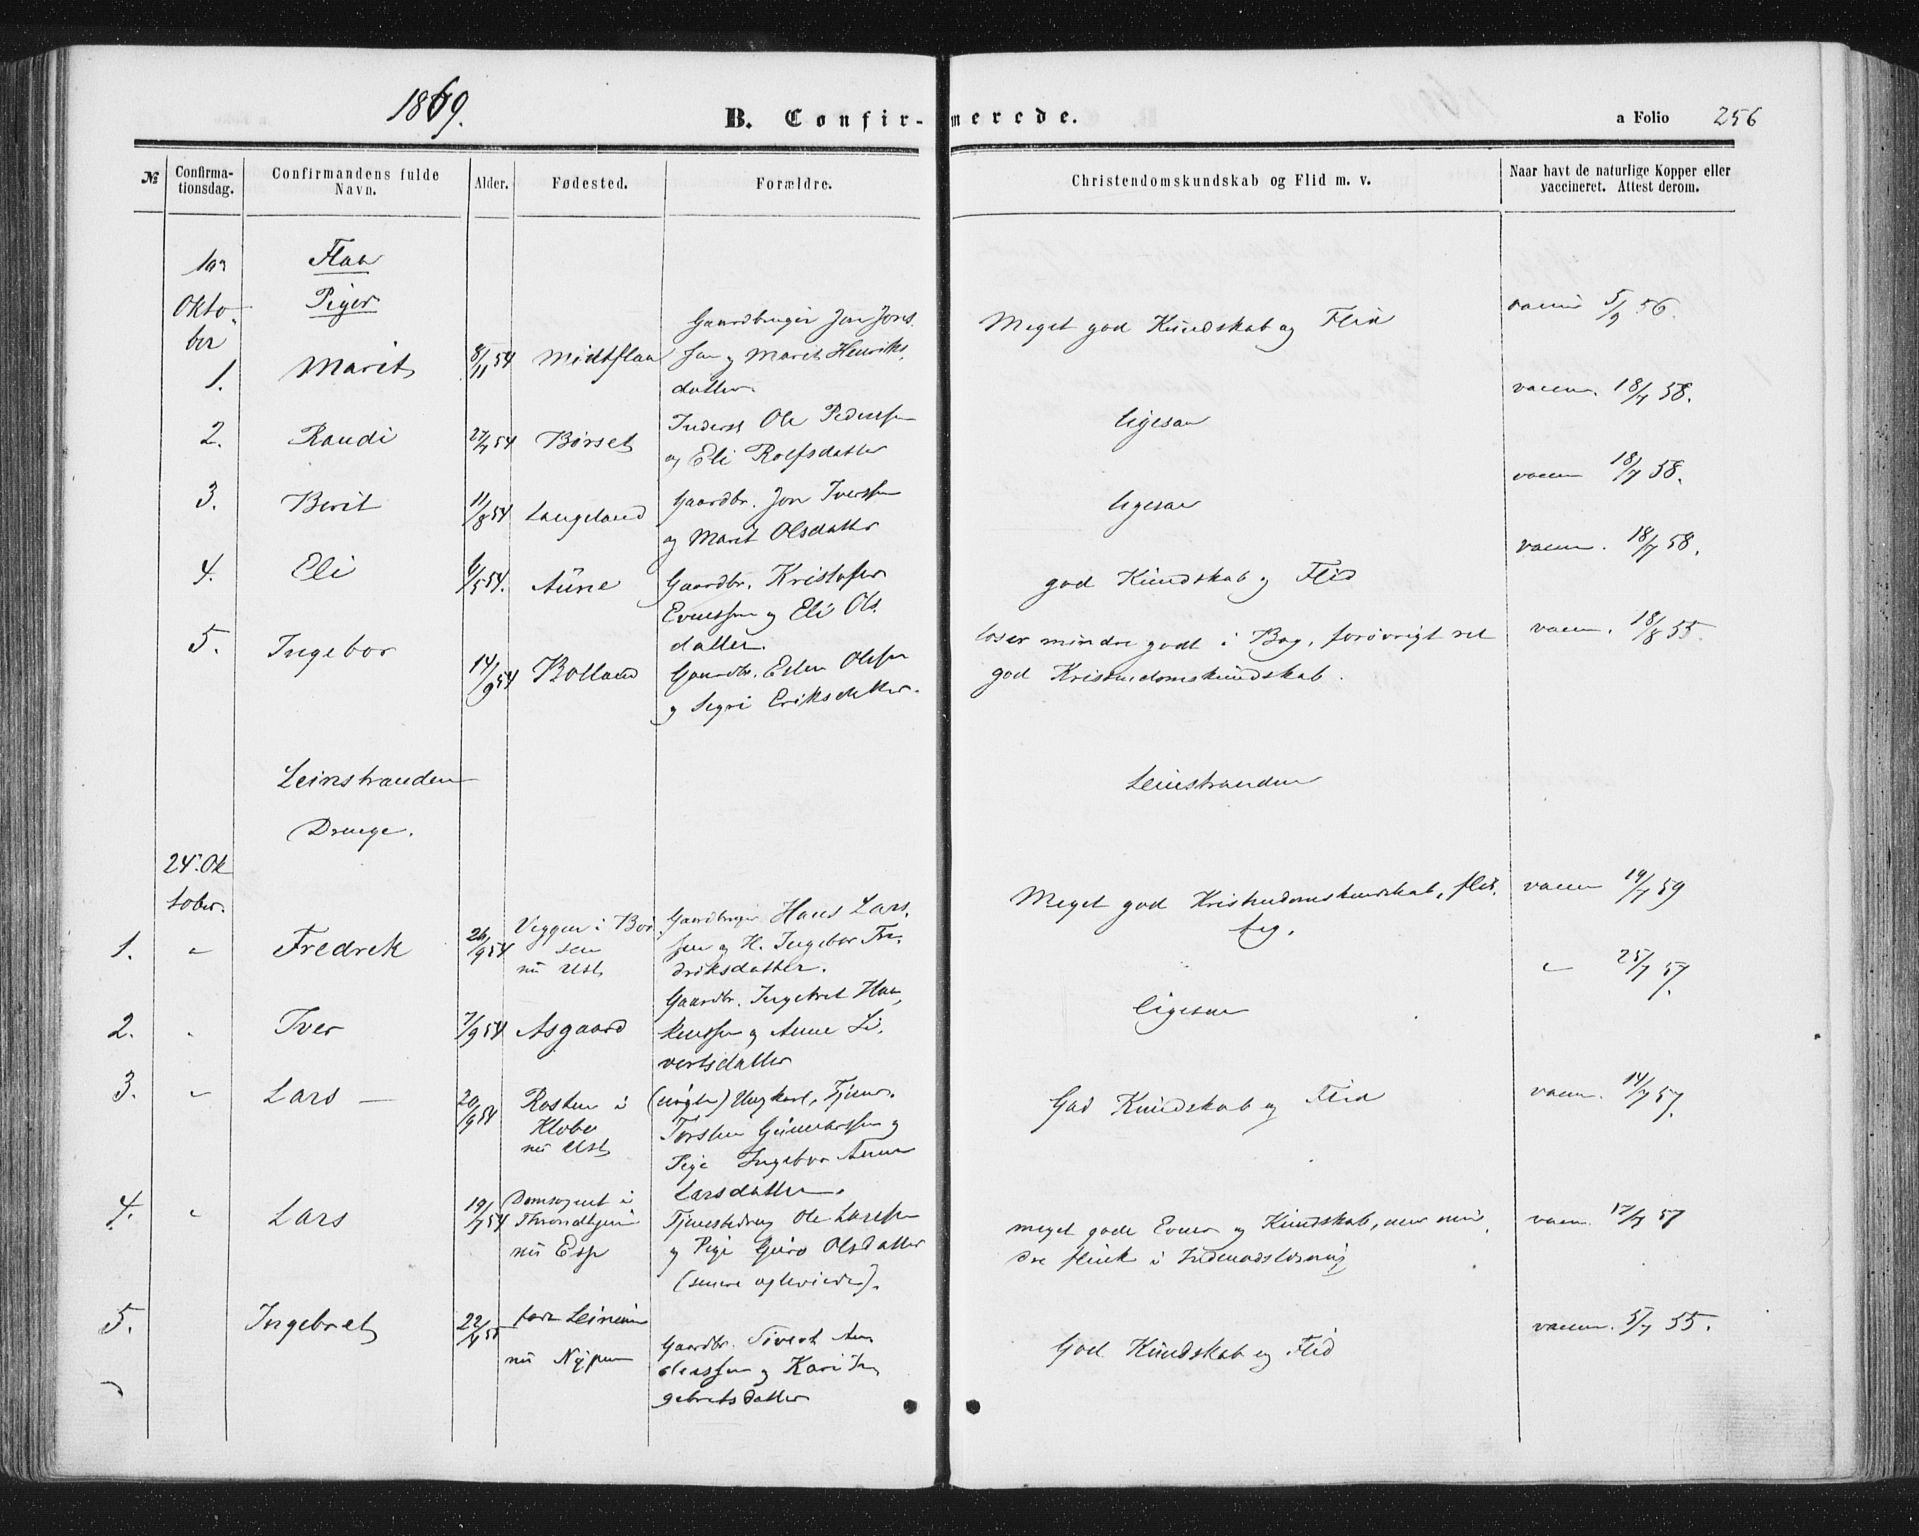 1869.
B. Confirmerede.
a Folio 256
№
Confirmationsdag.
Confirmandens fulde Navn.
Alder.
Fødested.
Forældre.
Christendomskundskab og Flid m. v.
Naar havt de naturlige Kopper eller vaccineret. Attest derom.
Oktober
Flaa
Piger
1. Marit 8/11 54 Midtflaa
Gaardbruger Jon Jons
sen og Marit Henriks
datter
Meget god Kundskab og Flid
5/9 56.
2. Randi 27/7 54 Børset
Inderst Ole Pedersen
og Eli Rolfsdatter
ligesaa
vaccin. 18/7 58.
3. Berit 11/8 54 Langeland
Gaardbr. Jon Iversen
og Marit Olsdatter
ligesaa
vaccin 18/7 58.
4. Eli 6/5 54. Aune
Gaardbr. Kristofer
Evensen og Eli Ols
datter.
god Kundskab og Flid
vaccin. 18/7 58.
5. Ingebor 14/9 54 Bolland
Gaardbr. Esten Olsen
og Segri Eriksdatter.
læser mindre godt i Bog, forøvrigt ret
god Kristendomskundskab.
vaccin. 18/8 55.
Leinstranden
Leinstranden
Drenge.
24. Ok
tober.
1. " Fredrek 26/9 54
Veggen i Bør
sen
nu Ust
Gaardbruger Hans Lars
sen og H. Ingebor Fre
driksdatter.
Meget god Kristendomskundskab, flit
tig.
vaccin 19/7 59
2. " Iver 7/9 54 Asgaard
Gaardbr. Ingebret Haa
kensen og Anne Si
vertsdatter
ligesaa
" 25/7 57.
3. " Lars 20/9 54
Rosten i
Klæbo
nu Ust
(uægte) Ungkarl, Tjener
Torsten Gunnarsen og
Pige Ingebor Anne
Larsdatter.
God Kundskab og Flid
vaccin. 14/7 57.
4. " Lars 19/7 54
Domsognet i
Throndhjem
nu Esp
Tjenestedreng Ole Larsen
og Pige Guro Olsdatter
(senere egteviede).
meget gode Evner og Kundskab, men min
dre flink i Indenadslæsning
vaccin. 17/7 57
5. Ingebret
Leinum
nu Nypan
Gaardbr. Sivert An
dersen og Kari In
gebretsdatter
God Kundskab og Flid
vaccin. 5/7 55.